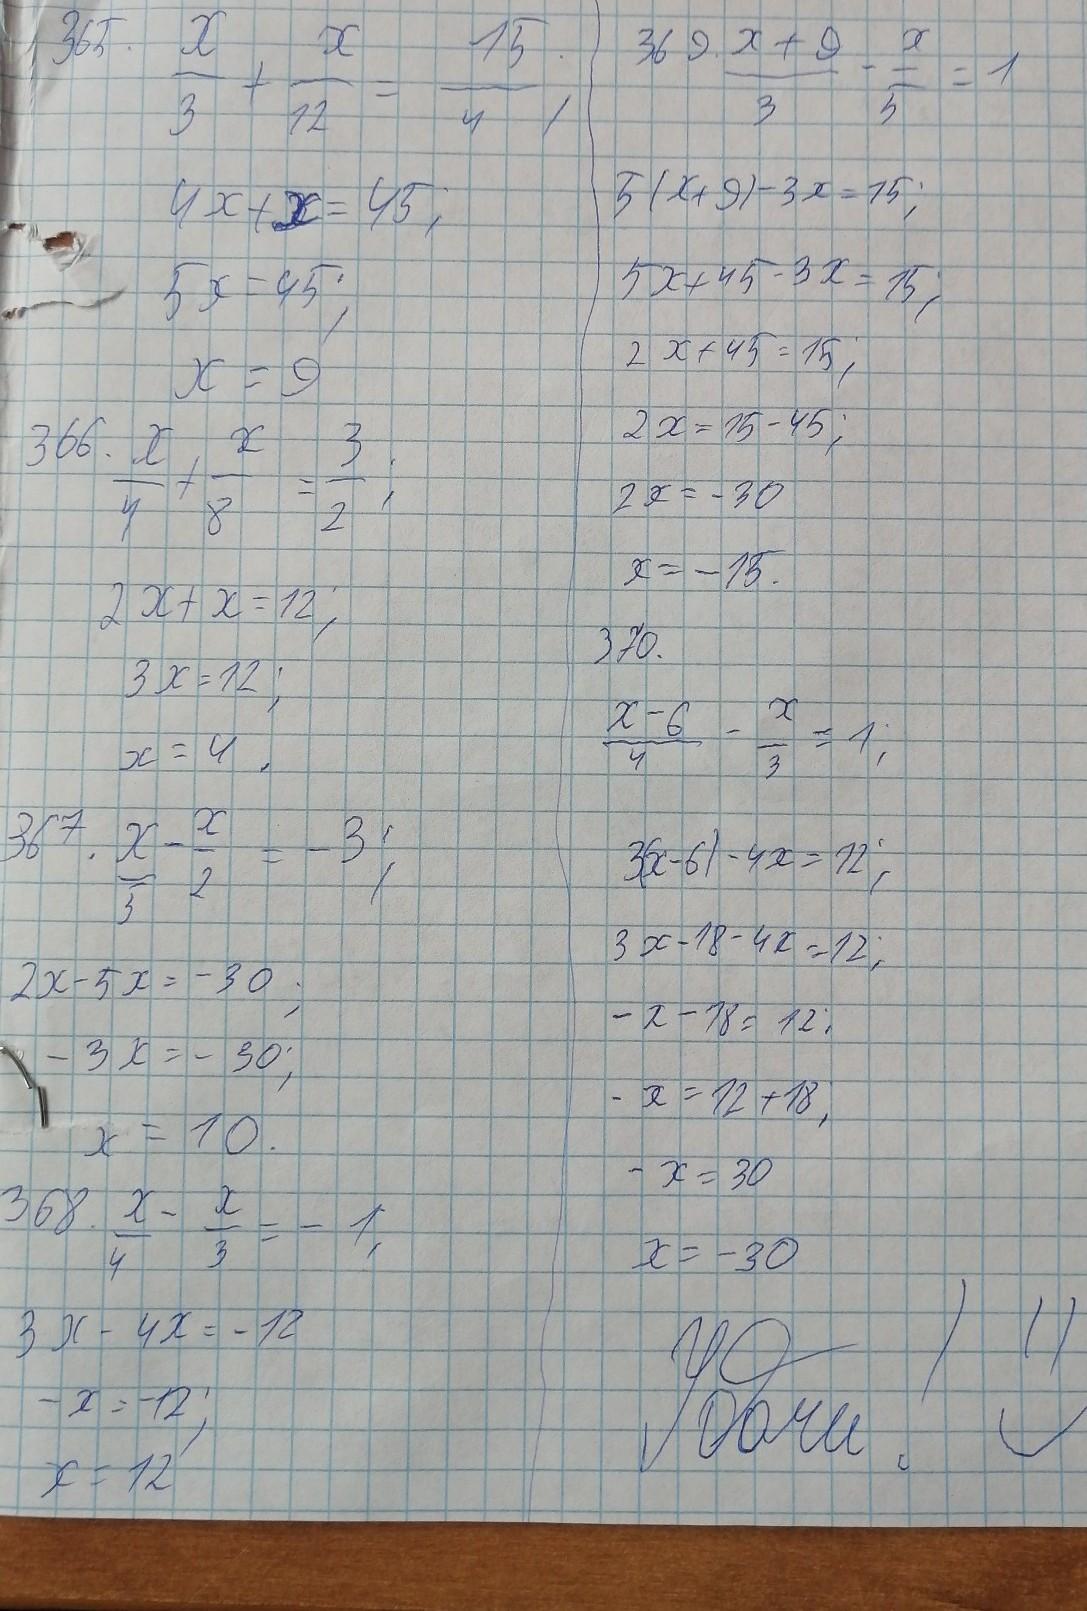 365. x/3 + x/12 = 15/4;
4x+x=45;
5x=45;
x=9
366. x/4 + x/8 = 3/2;
2x+x=12;
3x=12;
x=4.
367. x/5 - x/2 = -3;
2x-5x=-30;
-3x=-30;
x=10.
368. x/4 - x/3 = -1;
3x-4x=-12
-x=-12;
x=12
369. x+9/3 - x/5 = 1
5(x+9)-3x=15;
5x+45-3x=15;
2x+45=15;
2x=15-45;
2x=-30
x=-15.
370.
x-6/4 - x/3 = 1;
3(x-6)-4x=12;
3x-18-4x=12;
-x-18=12;
-x=12+18;
-x=30
x=-30
Удачи!